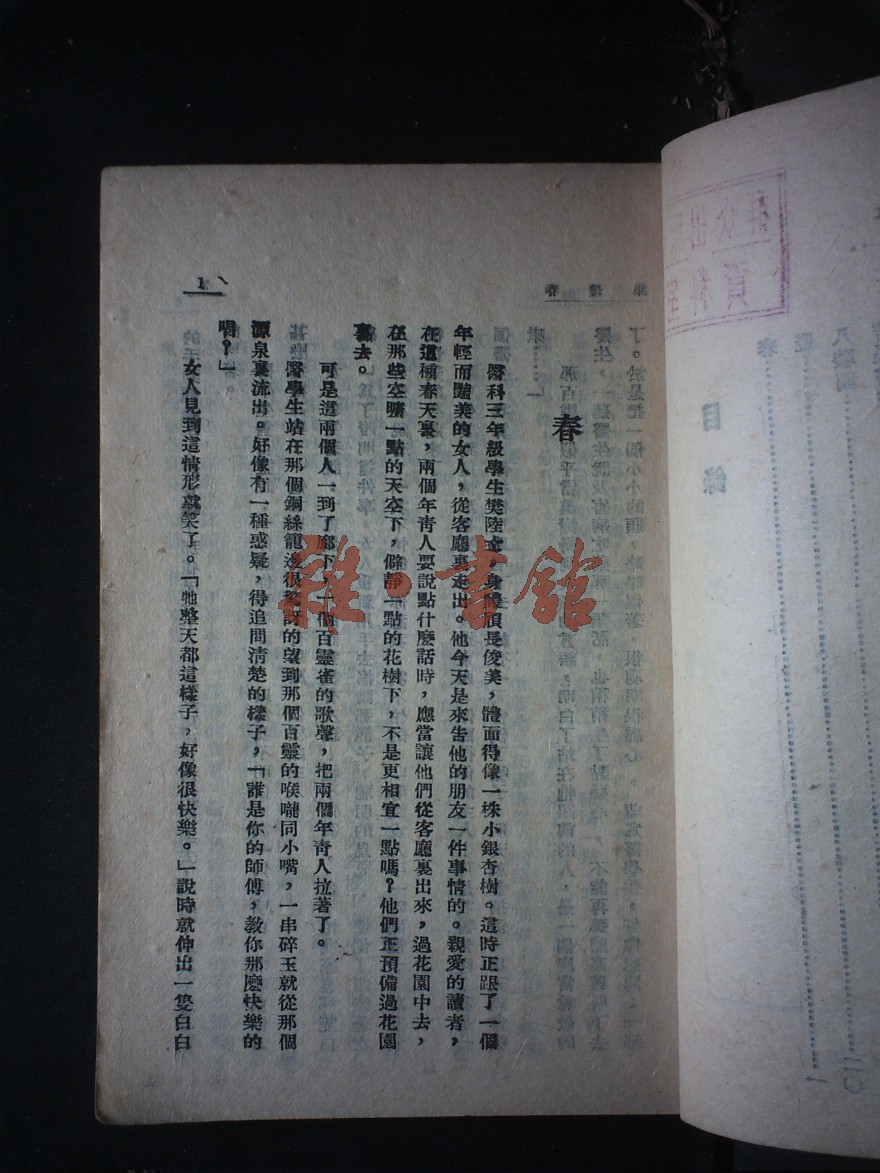 春燈集
春
醫科三年級學生樊陸士,身體頎長俊美,體面得像一株小銀杏樹。這時正跟了一個
年輕而豔美的女人,從客廳裏走出。他今天是來告他的朋友一件事情的。親愛的讀者,
在這種春天裏,兩個年青人要說點什麼話時,應當讓他們從客廳裏出來,過花園中去,
在那些空曠一點的天空下,僻靜一點的花樹下,不是更相宜一點嗎?他們正預備過花園
裏去。
可是這兩個人一到了廊下,一個百靈雀的歌聲,把兩個年青人拉著了。
醫學生站在那個銅絲籠邊很驚訝的望到那個百靈的喉嚨同小嘴,一串碎玉就從那個
源泉裏流出。好像有一種惑疑,得追問清楚的樣子,「誰是你的師傅,教你那麼快樂的
唱?」
女人見到這情形就笑了。「牠整天都這樣子,好像很快樂。」說時就伸出一隻白白
1
雜·書館